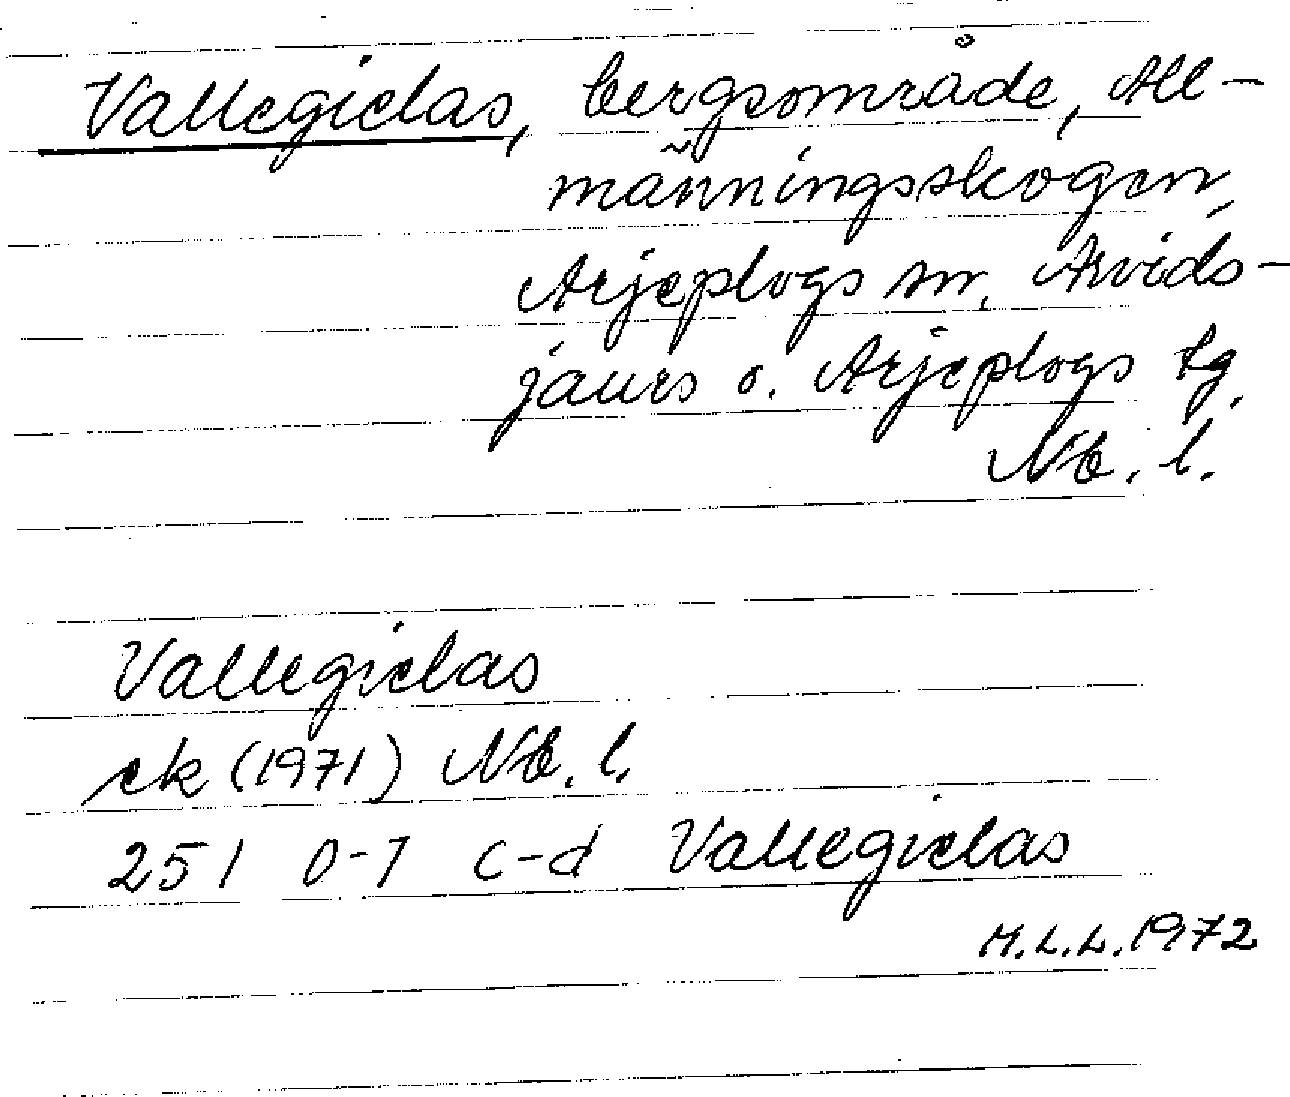 Vallegielas, bergsområde, All-
männingsskogen,
Arjeplogs sn, Arvids-
jaurs o. Arjeplogs tg.
Nb. l.
Vallegielas
ek (1971) Nb. l.
251 0-1 c-d Vallegielas
M.L.L. 1972